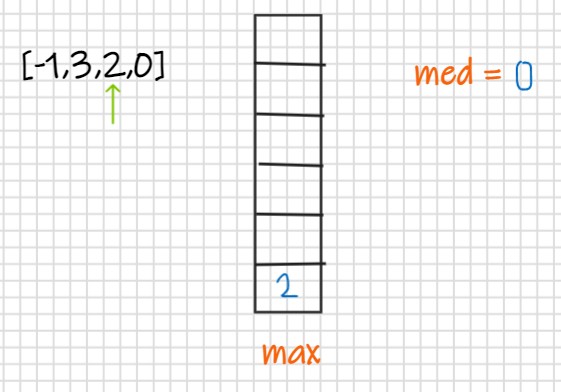 [-1,3,2,0]
med = 0
2
max